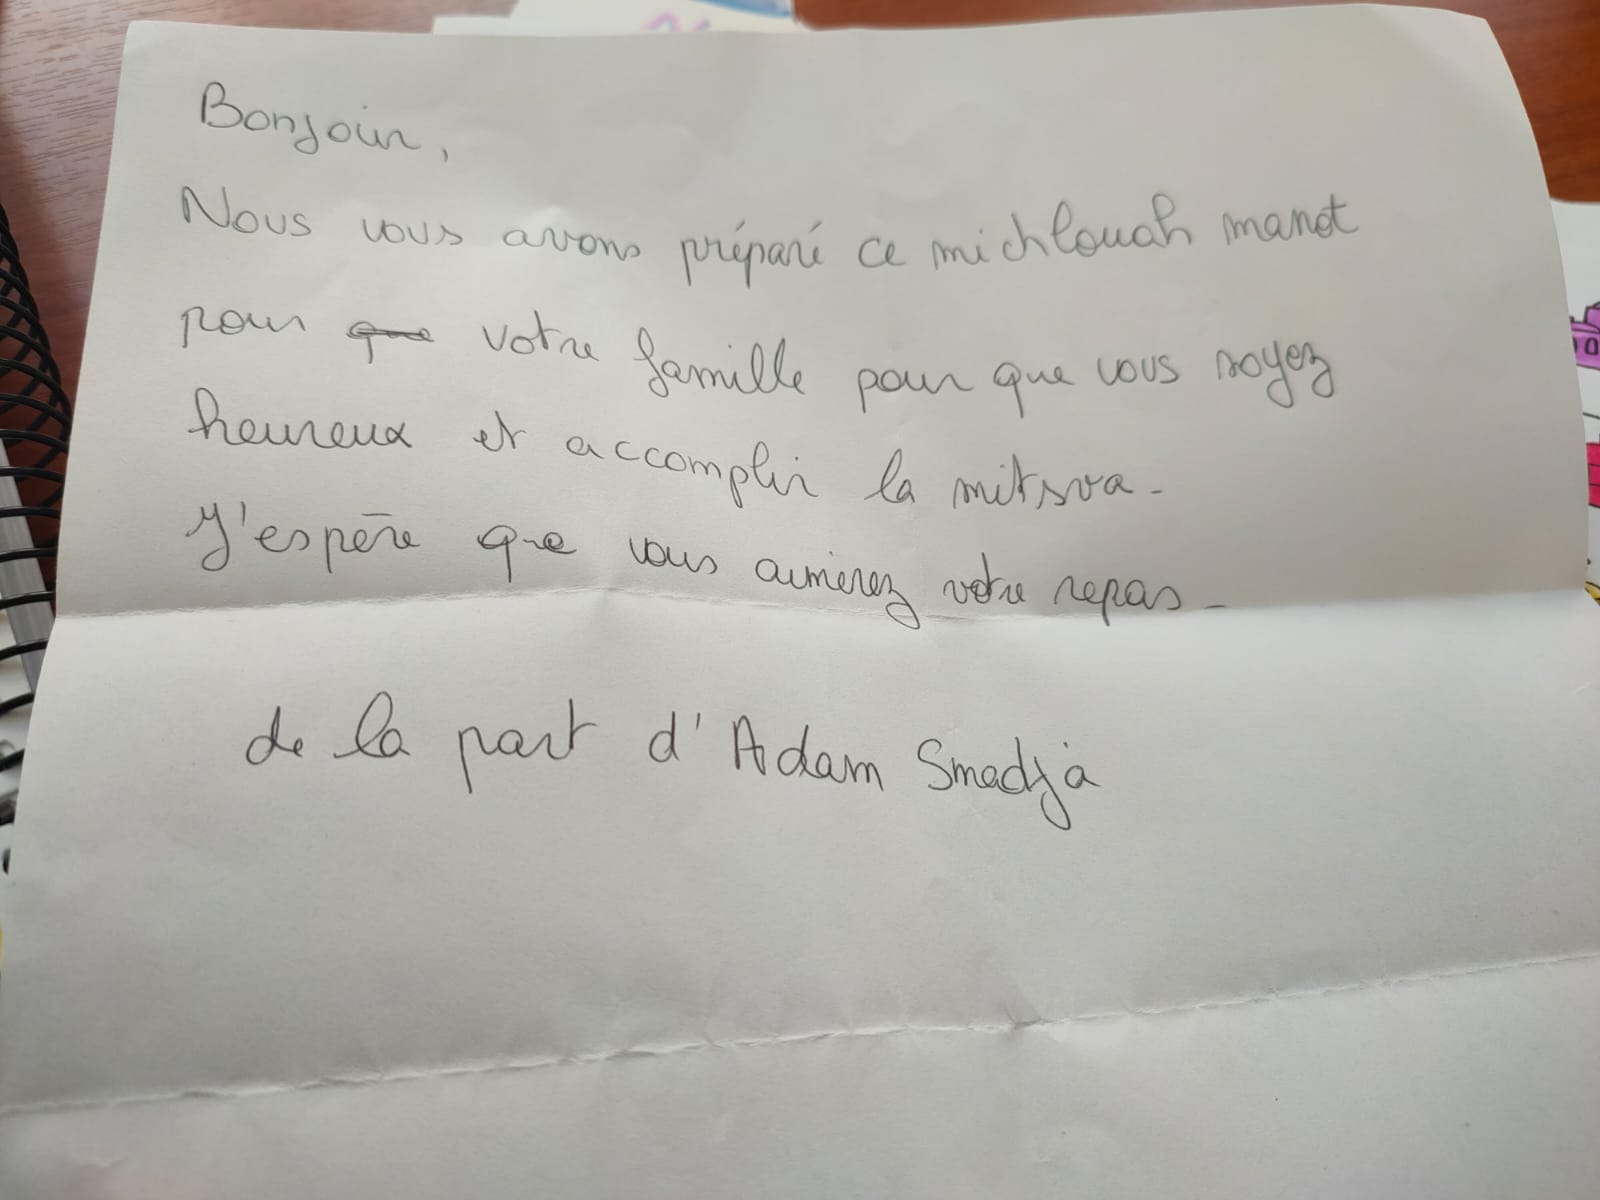 Bonjour,
Nous vous avons préparé ce michlouah manot
pour que votre famille pour que vous soyez
heureux et accomplir la mitsva.
J'espère que vous aimerez votre repas.
de la part d'Adam Smadja